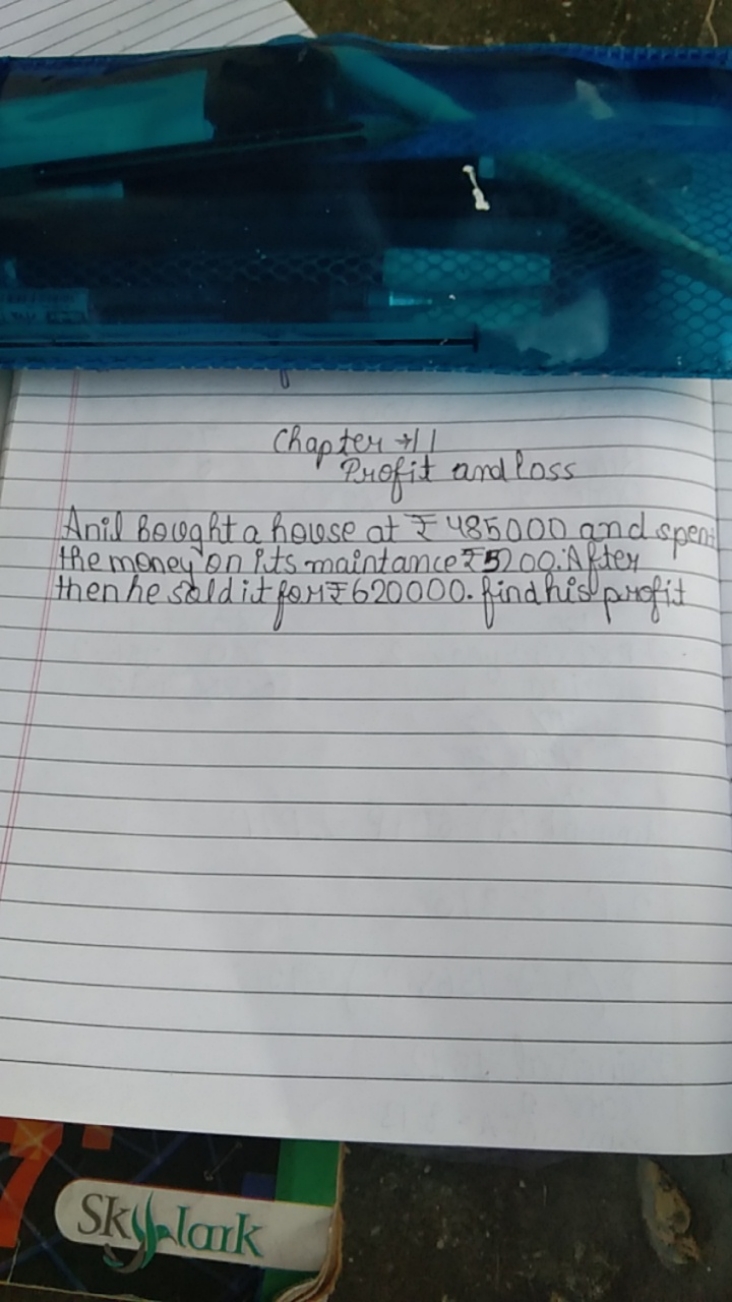 Chapter → 11
Profit and loss
Anil Bought a house at ₹ 485000 and spent
the money on its maintance ₹ 5200. After
then he sold it for ₹ 620000. find his profit
7
Skylark